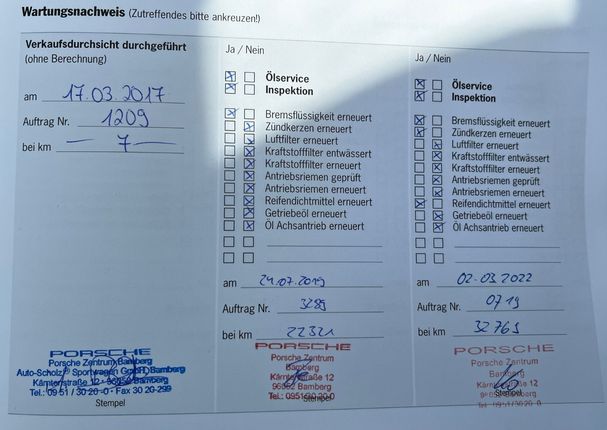 Wartungsnachweis (Zutreffendes bitte ankreuzen!)
Verkaufsdurchsicht durchgeführt
(ohne Berechnung)
am 17.03.2017
Auftrag Nr. 1209
bei km — 7 —
PORSCHE
Porsche Zentrum Bamberg
Auto-Scholz Sportwagen GmbH Bamberg
Kärntenstraße 12 - 96052 Bamberg
Tel.: 09 51 / 30 20 -0 - Fax 30 20-299
Stempel
Ja / Nein
Ölservice
Inspektion
Bremsflüssigkeit erneuert
Zündkerzen erneuert
Luftfilter erneuert
Kraftstofffilter entwässert
Kraftstofffilter erneuert
Antriebsriemen geprüft
Antriebsriemen erneuert
Reifendichtmittel erneuert
Getriebeöl erneuert
Öl Achsantrieb erneuert
am 24.07.2019
Auftrag Nr. 3289
bei km 22321
PORSCHE
Porsche Zentrum
Bamberg
Kärntenstraße 12
96052 Bamberg
Tel.: 0951/30 20-0
Stempel
Ja / Nein
Ölservice
Inspektion
Bremsflüssigkeit erneuert
Zündkerzen erneuert
Luftfilter erneuert
Kraftstofffilter entwässert
Kraftstofffilter erneuert
Antriebsriemen geprüft
Antriebsriemen erneuert
Reifendichtmittel erneuert
Getriebeöl erneuert
Öl Achsantrieb erneuert
am 02.03.2022
Auftrag Nr. 0719
bei km 32765
PORSCHE
Porsche Zentrum
Bamberg
Stempel